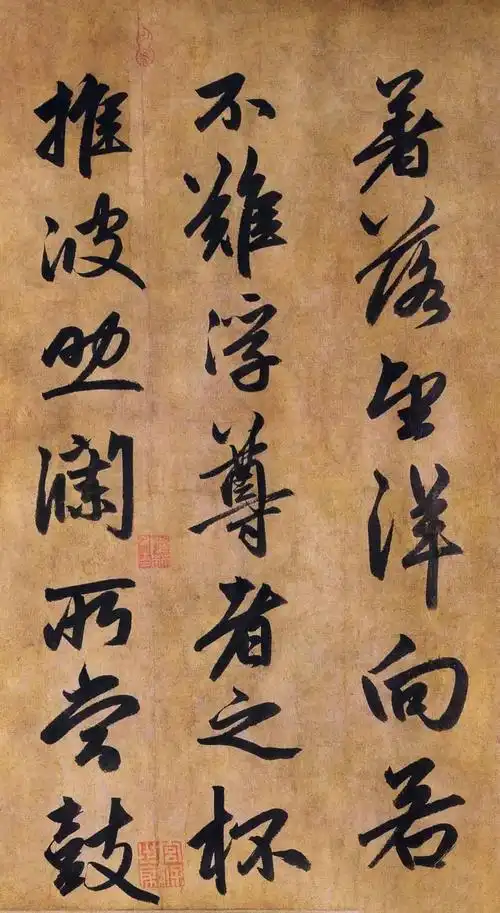 著落望洋向若
不難浮尊者之杯
推波助瀾所鼓